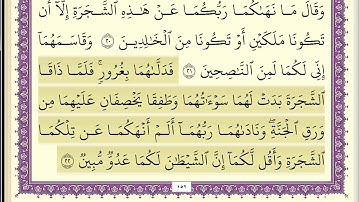 وَقَالَ مَا نَهَىٰكُمَا رَبُّكُمَا عَنْ هَـٰذِهِ الشَّجَرَةِ إِلَّا أَن
تَكُونَا مَلَكَيْنِ أَوْ تَكُونَا مِنَ الْخَـٰلِدِينَ ٢٠ وَقَاسَمَهُمَا
إِنِّي لَكُمَا لَمِنَ النَّـٰصِحِينَ ٢١ فَدَلَّىٰهُمَا بِغُرُورٍ فَلَمَّا ذَاقَا
الشَّجَرَةَ بَدَتْ لَهُمَا سَوْءَٰتُهُمَا وَطَفِقَا يَخْصِفَانِ عَلَيْهِمَا مِن
وَرَقِ الْجَنَّةِ وَنَادَىٰهُمَا رَبُّهُمَا أَلَمْ أَنْهَكُمَا عَن تِلْكُمَا
الشَّجَرَةِ وَأَقُل لَّكُمَا إِنَّ الشَّيْطَـٰنَ لَكُمَا عَدُوٌّ مُّبِينٌ ٢٢
١٥٢